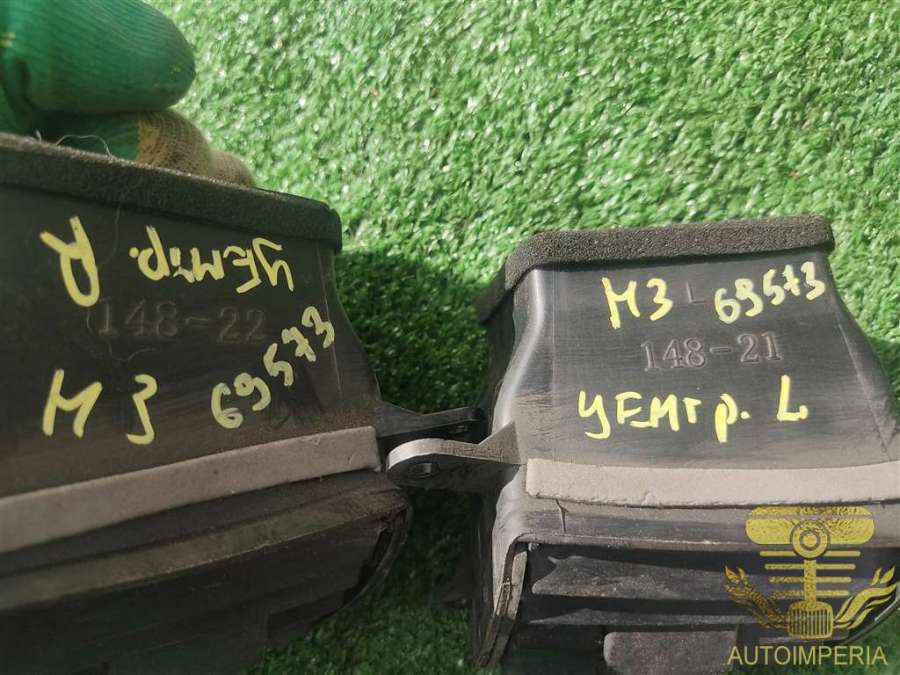 центр.
R
148-22
М3 69573
М3 L 69573
148-21
центр. L
AUTOIMPERIA